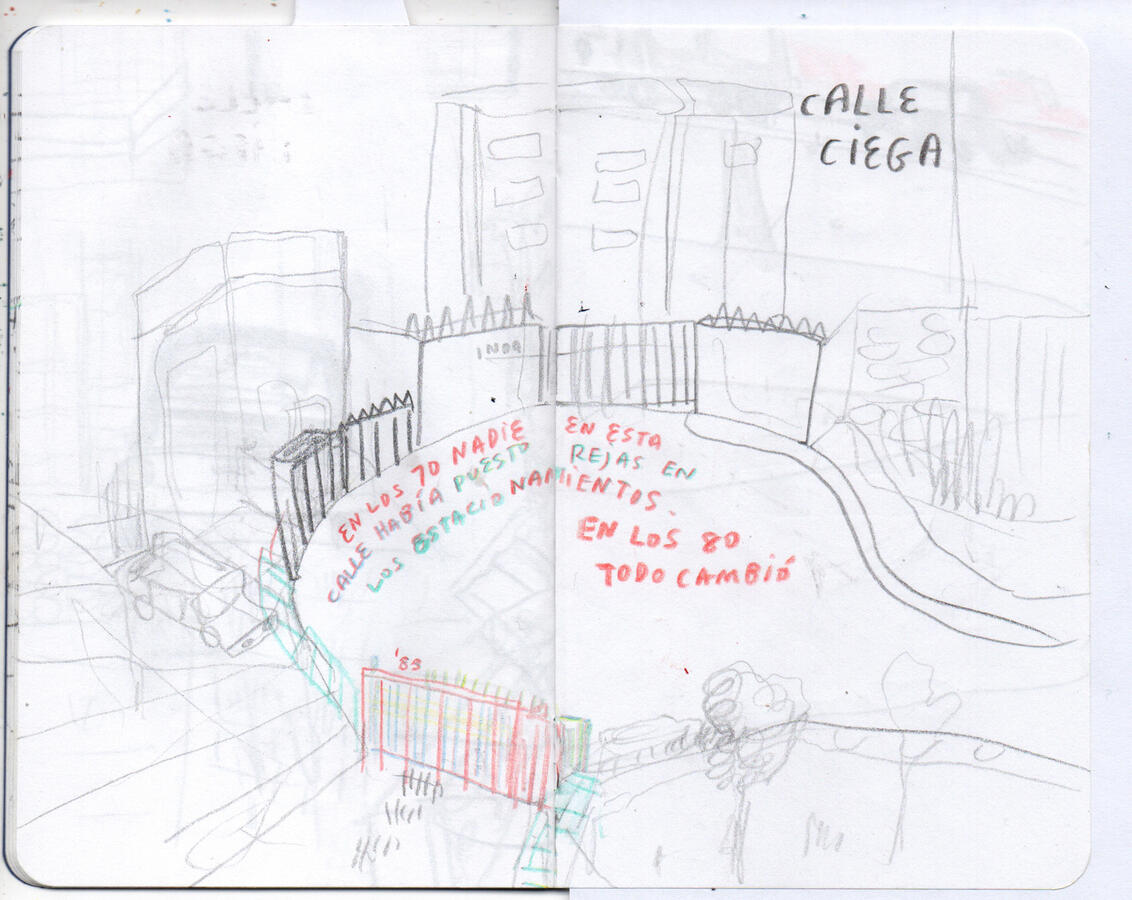 CALLE
CIEGA
EN LOS 70 NADIE EN ESTA
CALLE HABÍA PUESTO REJAS EN
LOS ESTACIONAMIENTOS.
EN LOS 80
TODO CAMBIÓ
'83